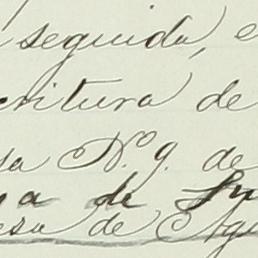 seguida, e
critura de
sa N.º 9. de
a de
esa de